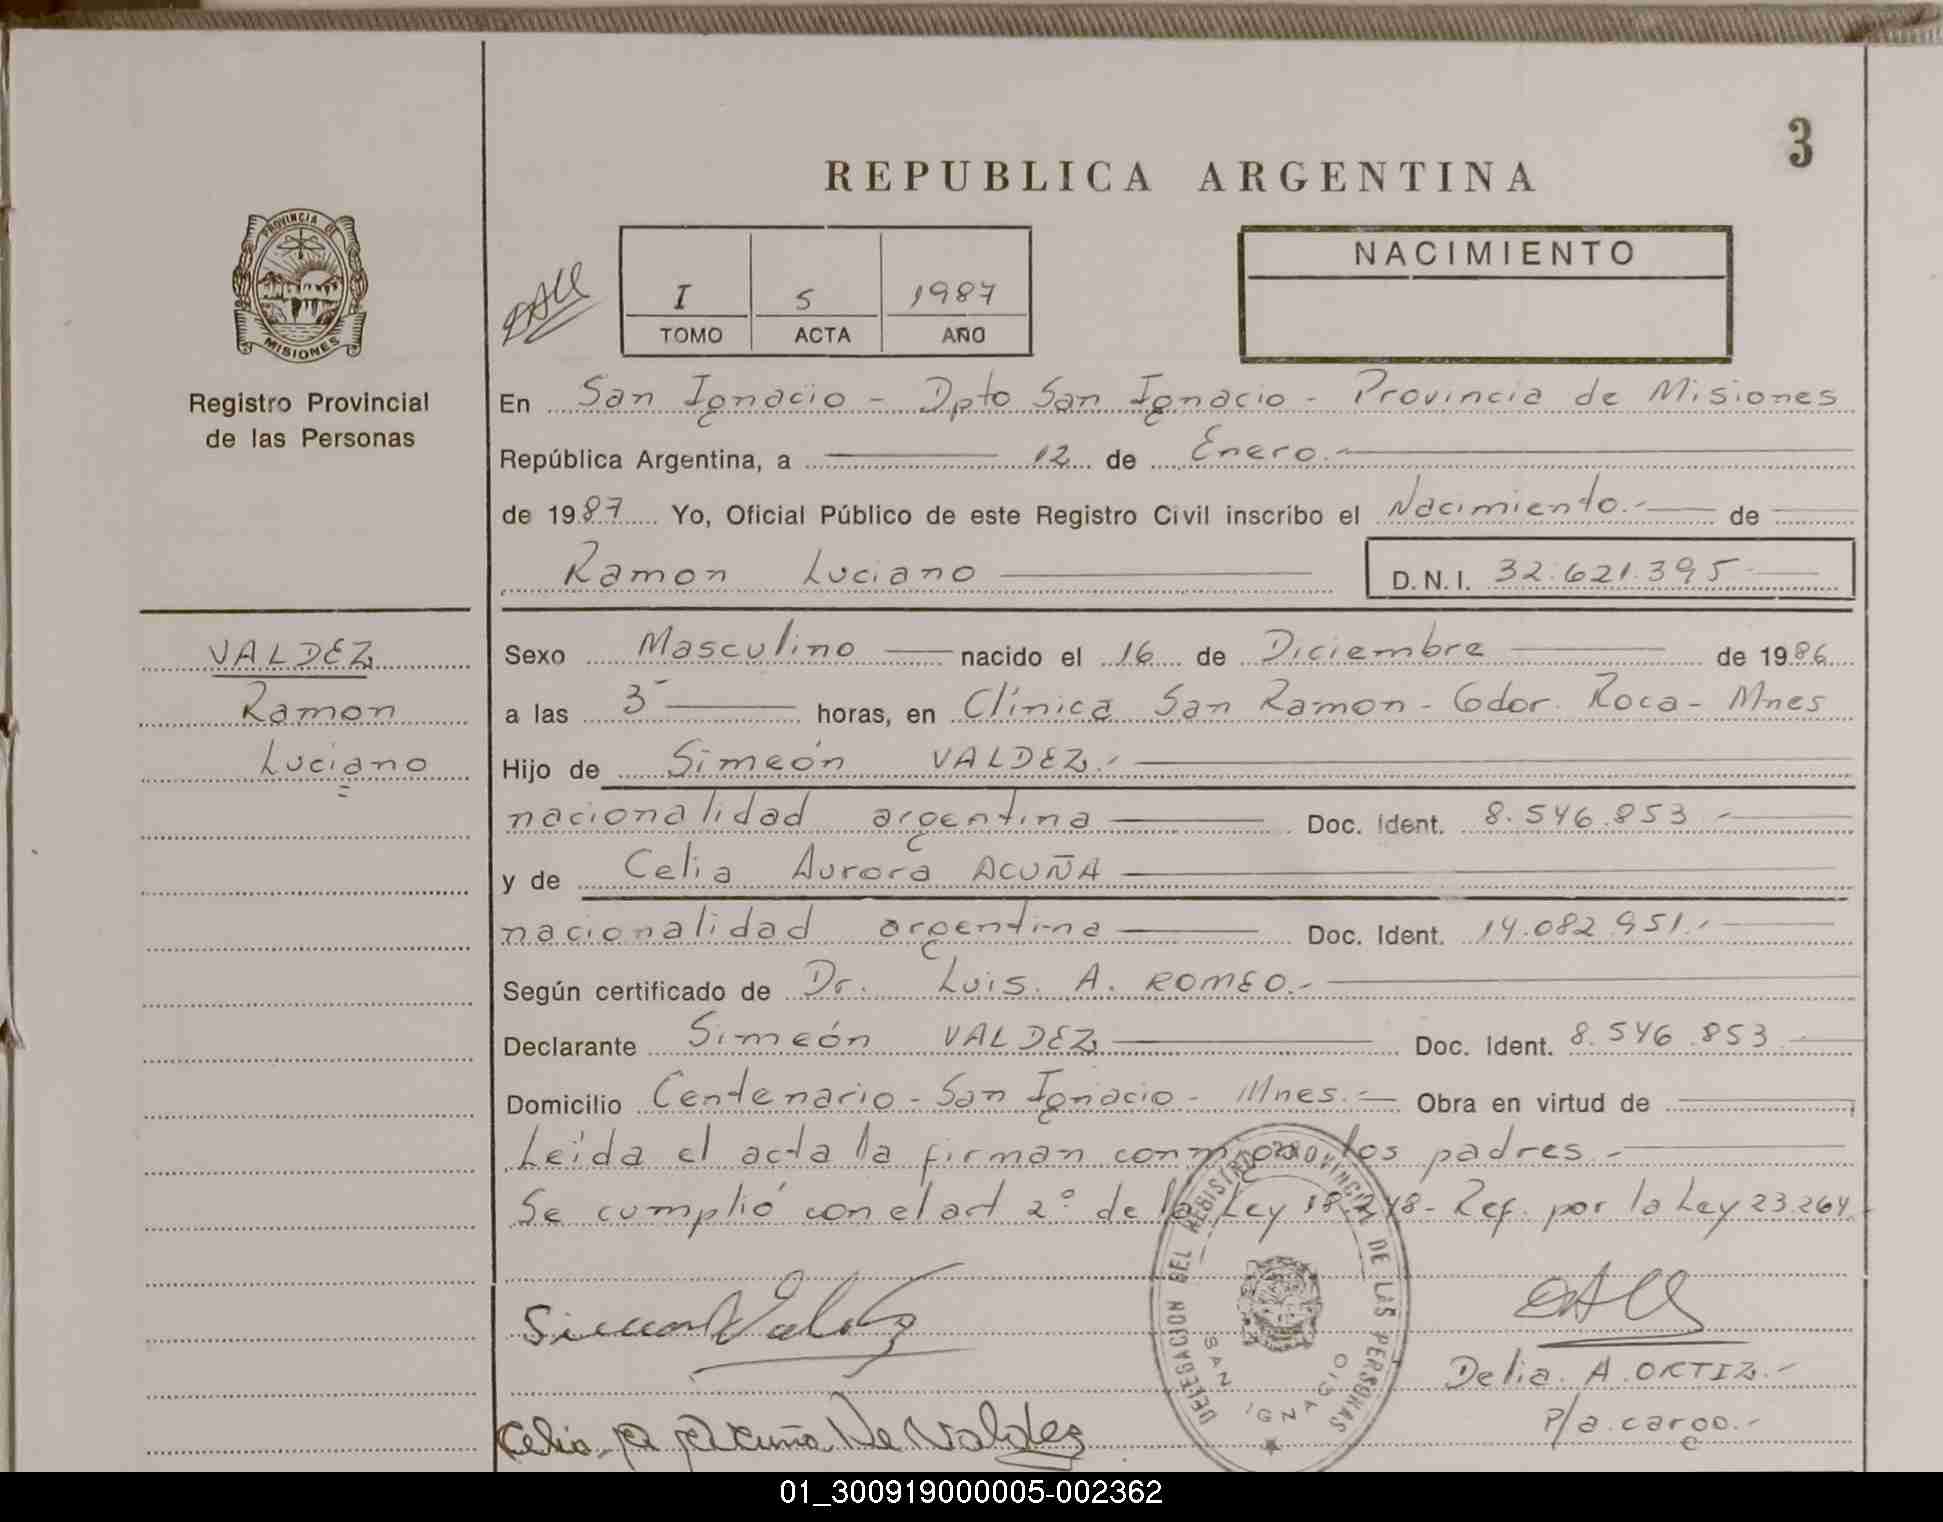 3
REPUBLICA ARGENTINA
PROVINCIA DE
MISIONES
Registro Provincial
de las Personas
I 5 1987
TOMO ACTA AÑO
NACIMIENTO
En San Ignacio - Dpto San Ignacio - Provincia de Misiones
República Argentina, a 12 de Enero.-
de 1987 Yo, Oficial Público de este Registro Civil inscribo el Nacimiento.- de
Ramon Luciano D.N.I. 32.621.395
VALDEZ
Ramon
Luciano
Sexo Masculino nacido el 16 de Diciembre de 1986
a las 3 horas, en Clínica San Ramon - Gdor. Roca - Mnes
Hijo de Simeón VALDEZ.-
nacionalidad argentina Doc. Ident. 8.546.853
y de Celia Aurora ACUÑA
nacionalidad argentina Doc. Ident. 14.082.951.-
Según certificado de Dr. Luis. A. ROMEO.-
Declarante Simeón VALDEZ Doc. Ident. 8.546.853
Domicilio Centenario - San Ignacio - Mnes.- Obra en virtud de
Leída el acta la firman conmigo los padres.-
Se cumplió con el art 2° de la Ley 18.248 - Ref. por la Ley 23.264.-
DELEGACION DEL REGISTRO PROVINCIAL DE LAS PERSONAS
SAN IGNACIO
Simeon Valdez
Delia. A. ORTIZ.-
P/a. cargo.-
Celia Acuña De Valdez
01_300919000005-002362